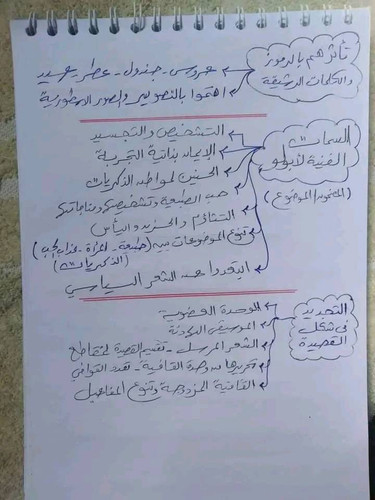 تأثرهم بالرموز
والكلمات الرشيقة
عروس - جندول - عطر - عبير
اهتموا بالتصوير والصور الأسطورية
السمات
الفنية لأبولو
(المضمون/الموضوع)
التشخيص والتجسيد
الإيمان بذاتية التجربة
الحنين لمواطن الذكريات
حب الطبيعة وتشخيصها ومناجاتها
التشاؤم والحزن واليأس
تنوع الموضوعات بين (طبيعة - المرأة - عذاب الحب
(الذكريات
ابتعدوا عن الشعر السياسي
التجديد
في شكل
القصيدة
الوحدة العضوية
الموسيقى
الشعر المرسل - تقسيم القصيدة لمقاطع
تحررها من وحدة القافية - تعدد القوافي
القافية المزدوجة وتنوع التفاعيل